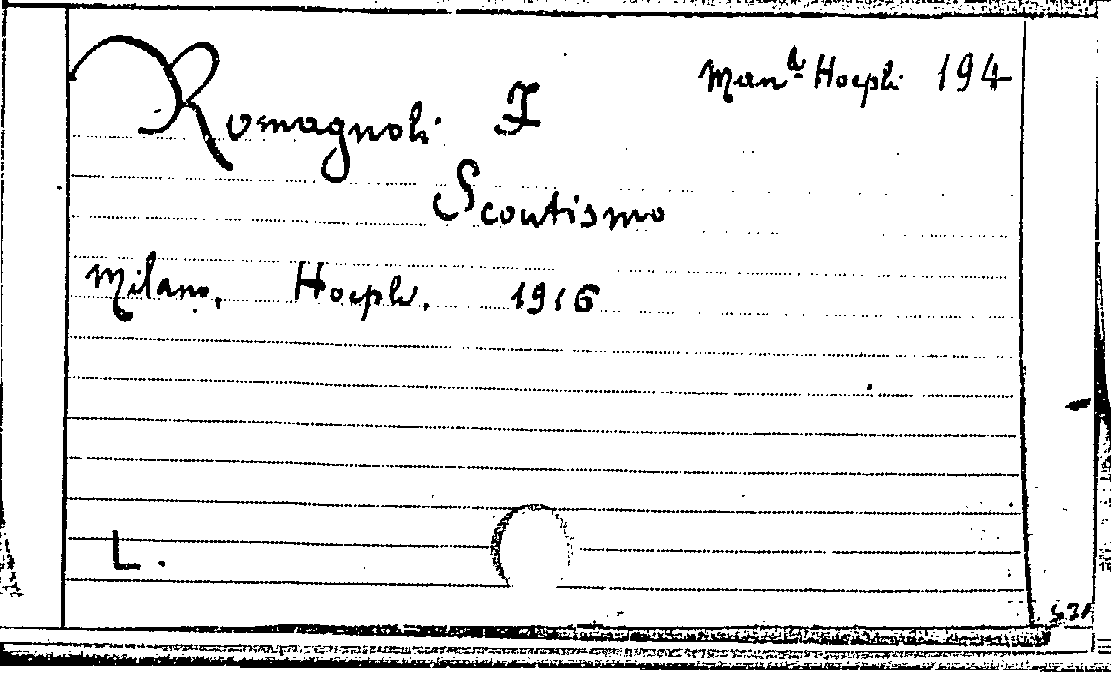 Man.li Hoepli 194
Romagnoli F
Scoutismo
Milano, Hoepli. 1916
L.